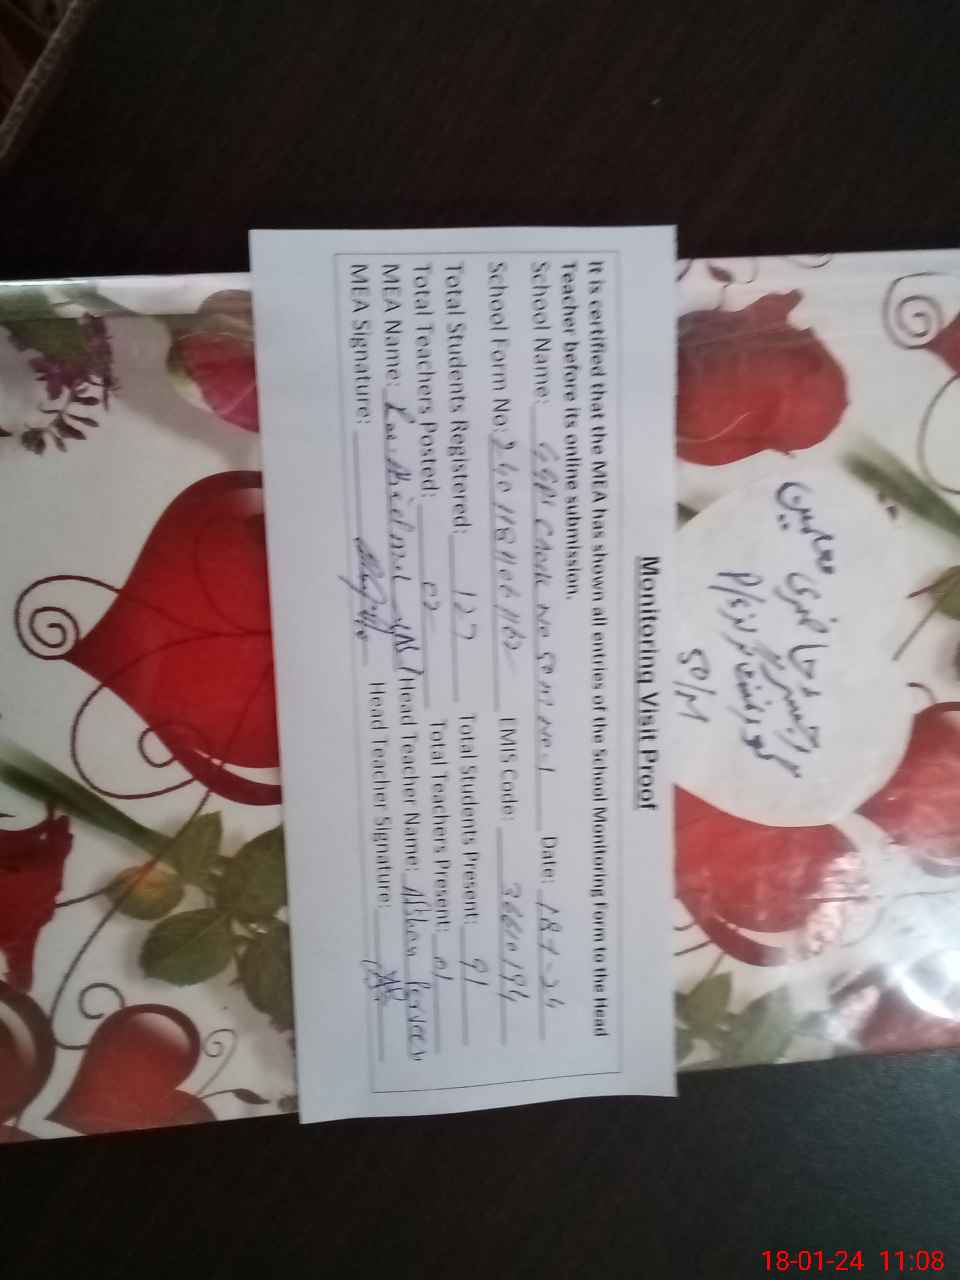 Monitoring Visit Proof
It is certified that the MEA has shown all entries of the School Monitoring Form to the Head
Teacher before its online submission.
School Name: GGPS Chak No 50 M No-1 Date: 18-1-24
School Form No: EMIS Code:
Total Students Registered: 127 Total Students Present: 91
Total Teachers Posted: 02 Total Teachers Present: 01
MEA Name: Head Teacher Name:
MEA Signature: Head Teacher Signature:
رجسٹر حاضری معلمین
گورنمنٹ گرلز
50/M
18-01-24 11:08